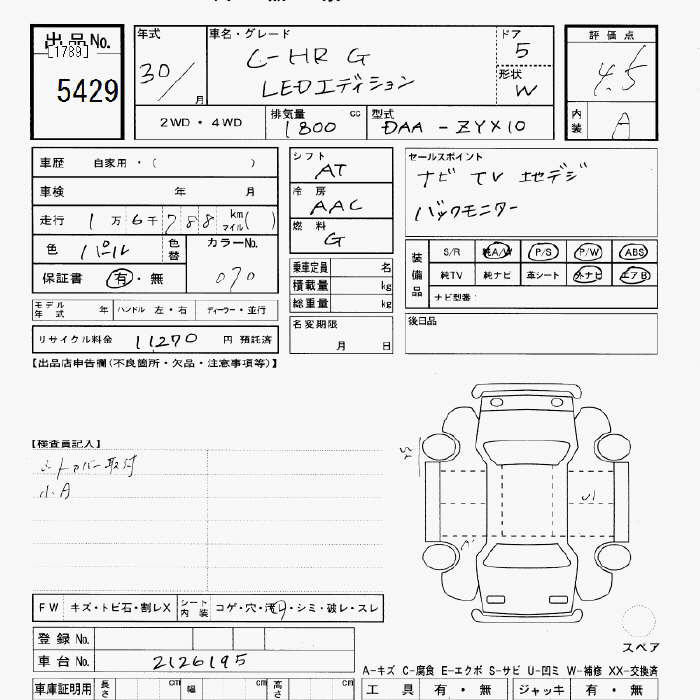 出品No.
[1789]
5429
年式
30/ 月
車名・グレード
C-HR G
LEDエディション
ドア
5
形状
W
評価点
4.5
内装
A
2WD・4WD
排気量
1800 cc
型式
DAA-ZYX10
車歴 自家用・( )
車検 年 月
走行 1万6千788 km マイル( )
色 パール 色替 カラーNo.
070
保証書 有・無
モデル年式 年 ハンドル 左・右 ディーラー・並行
リサイクル料金 11270 円 預託済
シフト
AT
冷房
AAC
燃料
G
乗車定員 名
積載量 kg
総重量 kg
名変期限
月 日
セールスポイント
ナビ TV 地デジ
バックモニター
装備品
S/R 純A/W P/S P/W ABS
純TV 純ナビ 革シート 外ナビ エアB
ナビ型番:
後日品
【出品店申告欄(不良箇所・欠品・注意事項等)】
【検査員記入】
シートカバー取付
小A
A'
U1
FW キズ・トビ石・割レX シート内装 コゲ・穴・汚レ・シミ・破レ・スレ
登録No.
車台No. 2126195
スペア
A-キズ C-腐食 E-エクボ S-サビ U-凹ミ W-補修 XX-交換済
車庫証明用 長さ cm 幅 cm 高さ cm
工具 有・無 ジャッキ 有・無